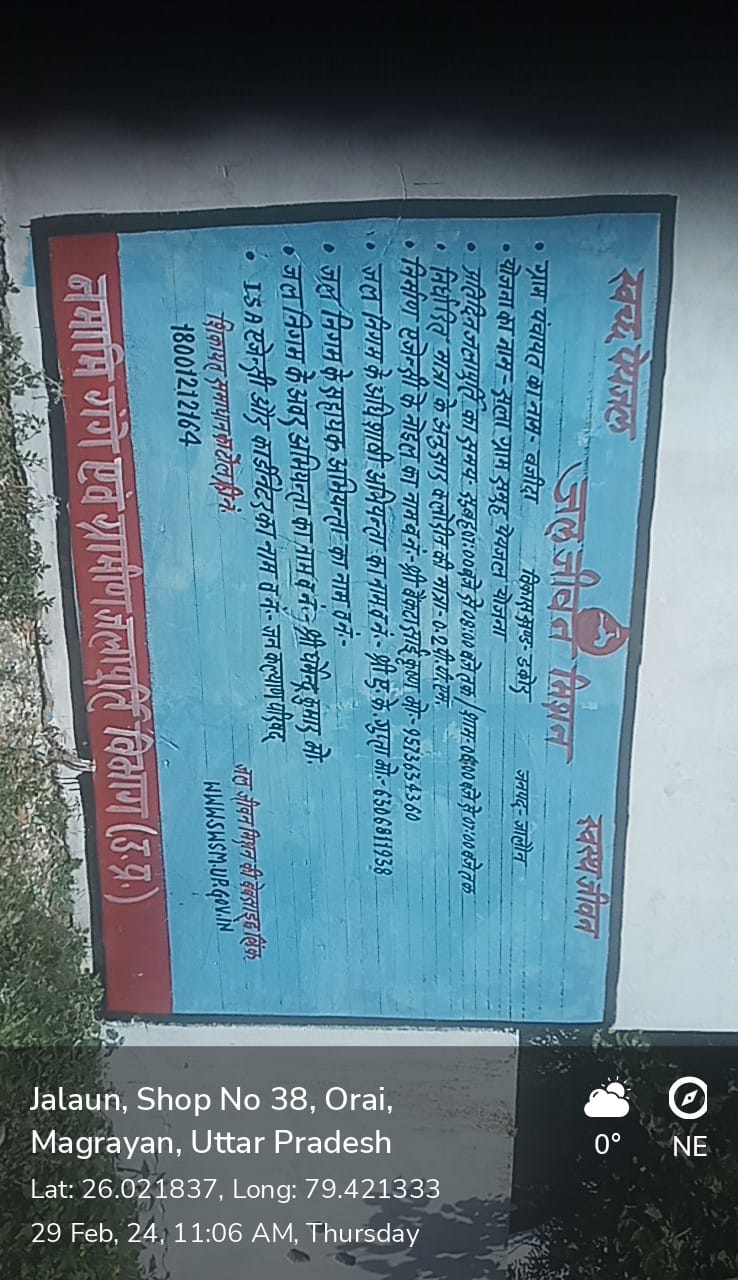 स्वच्छ पेयजल
जल जीवन मिशन
स्वस्थ जीवन
• ग्राम पंचायत का नाम- विकास खण्ड- डकोर जनपद- जालौन
• योजना का नाम- ग्राम समूह पेयजल योजना
• प्रतिदिन जलापूर्ति का समय- सुबह 07:00 बजे से 08:00 बजे तक / शाम 06:00 बजे से 07:00 बजे तक
• निर्धारित मात्रा के अनुसार क्लोरीन की मात्रा- 0.2 पी.पी.एम.
• निर्माण एजेन्सी के नोडल का नाम व नं- श्री वेंकट साई कृष्णा मो- 9573654360
• जल निगम के अधिशाषी अभियन्ता का नाम व नं- श्री ए.के.गुप्ता मो- 6306811938
• जल निगम के सहायक अभियन्ता का नाम व नं-
• जल निगम के अवर अभियन्ता का नाम व नं- श्री कुमार मो.
• I.S.A एजेन्सी ओर कार्डिनेटर का नाम व नं- जन कल्याण परिषद
शिकायत समाधान को टोल फ्री नं.
18001212164
जल जीवन मिशन की वेबसाइट लिंक
WWW.SWSM.UP.GOV.IN
नमामि गंगे एवं ग्रामीण जलापूर्ति विभाग (उ.प्र.)
Jalaun, Shop No 38, Orai,
Magrayan, Uttar Pradesh
Lat: 26.021837, Long: 79.421333
29 Feb, 24, 11:06 AM, Thursday
0°
NE